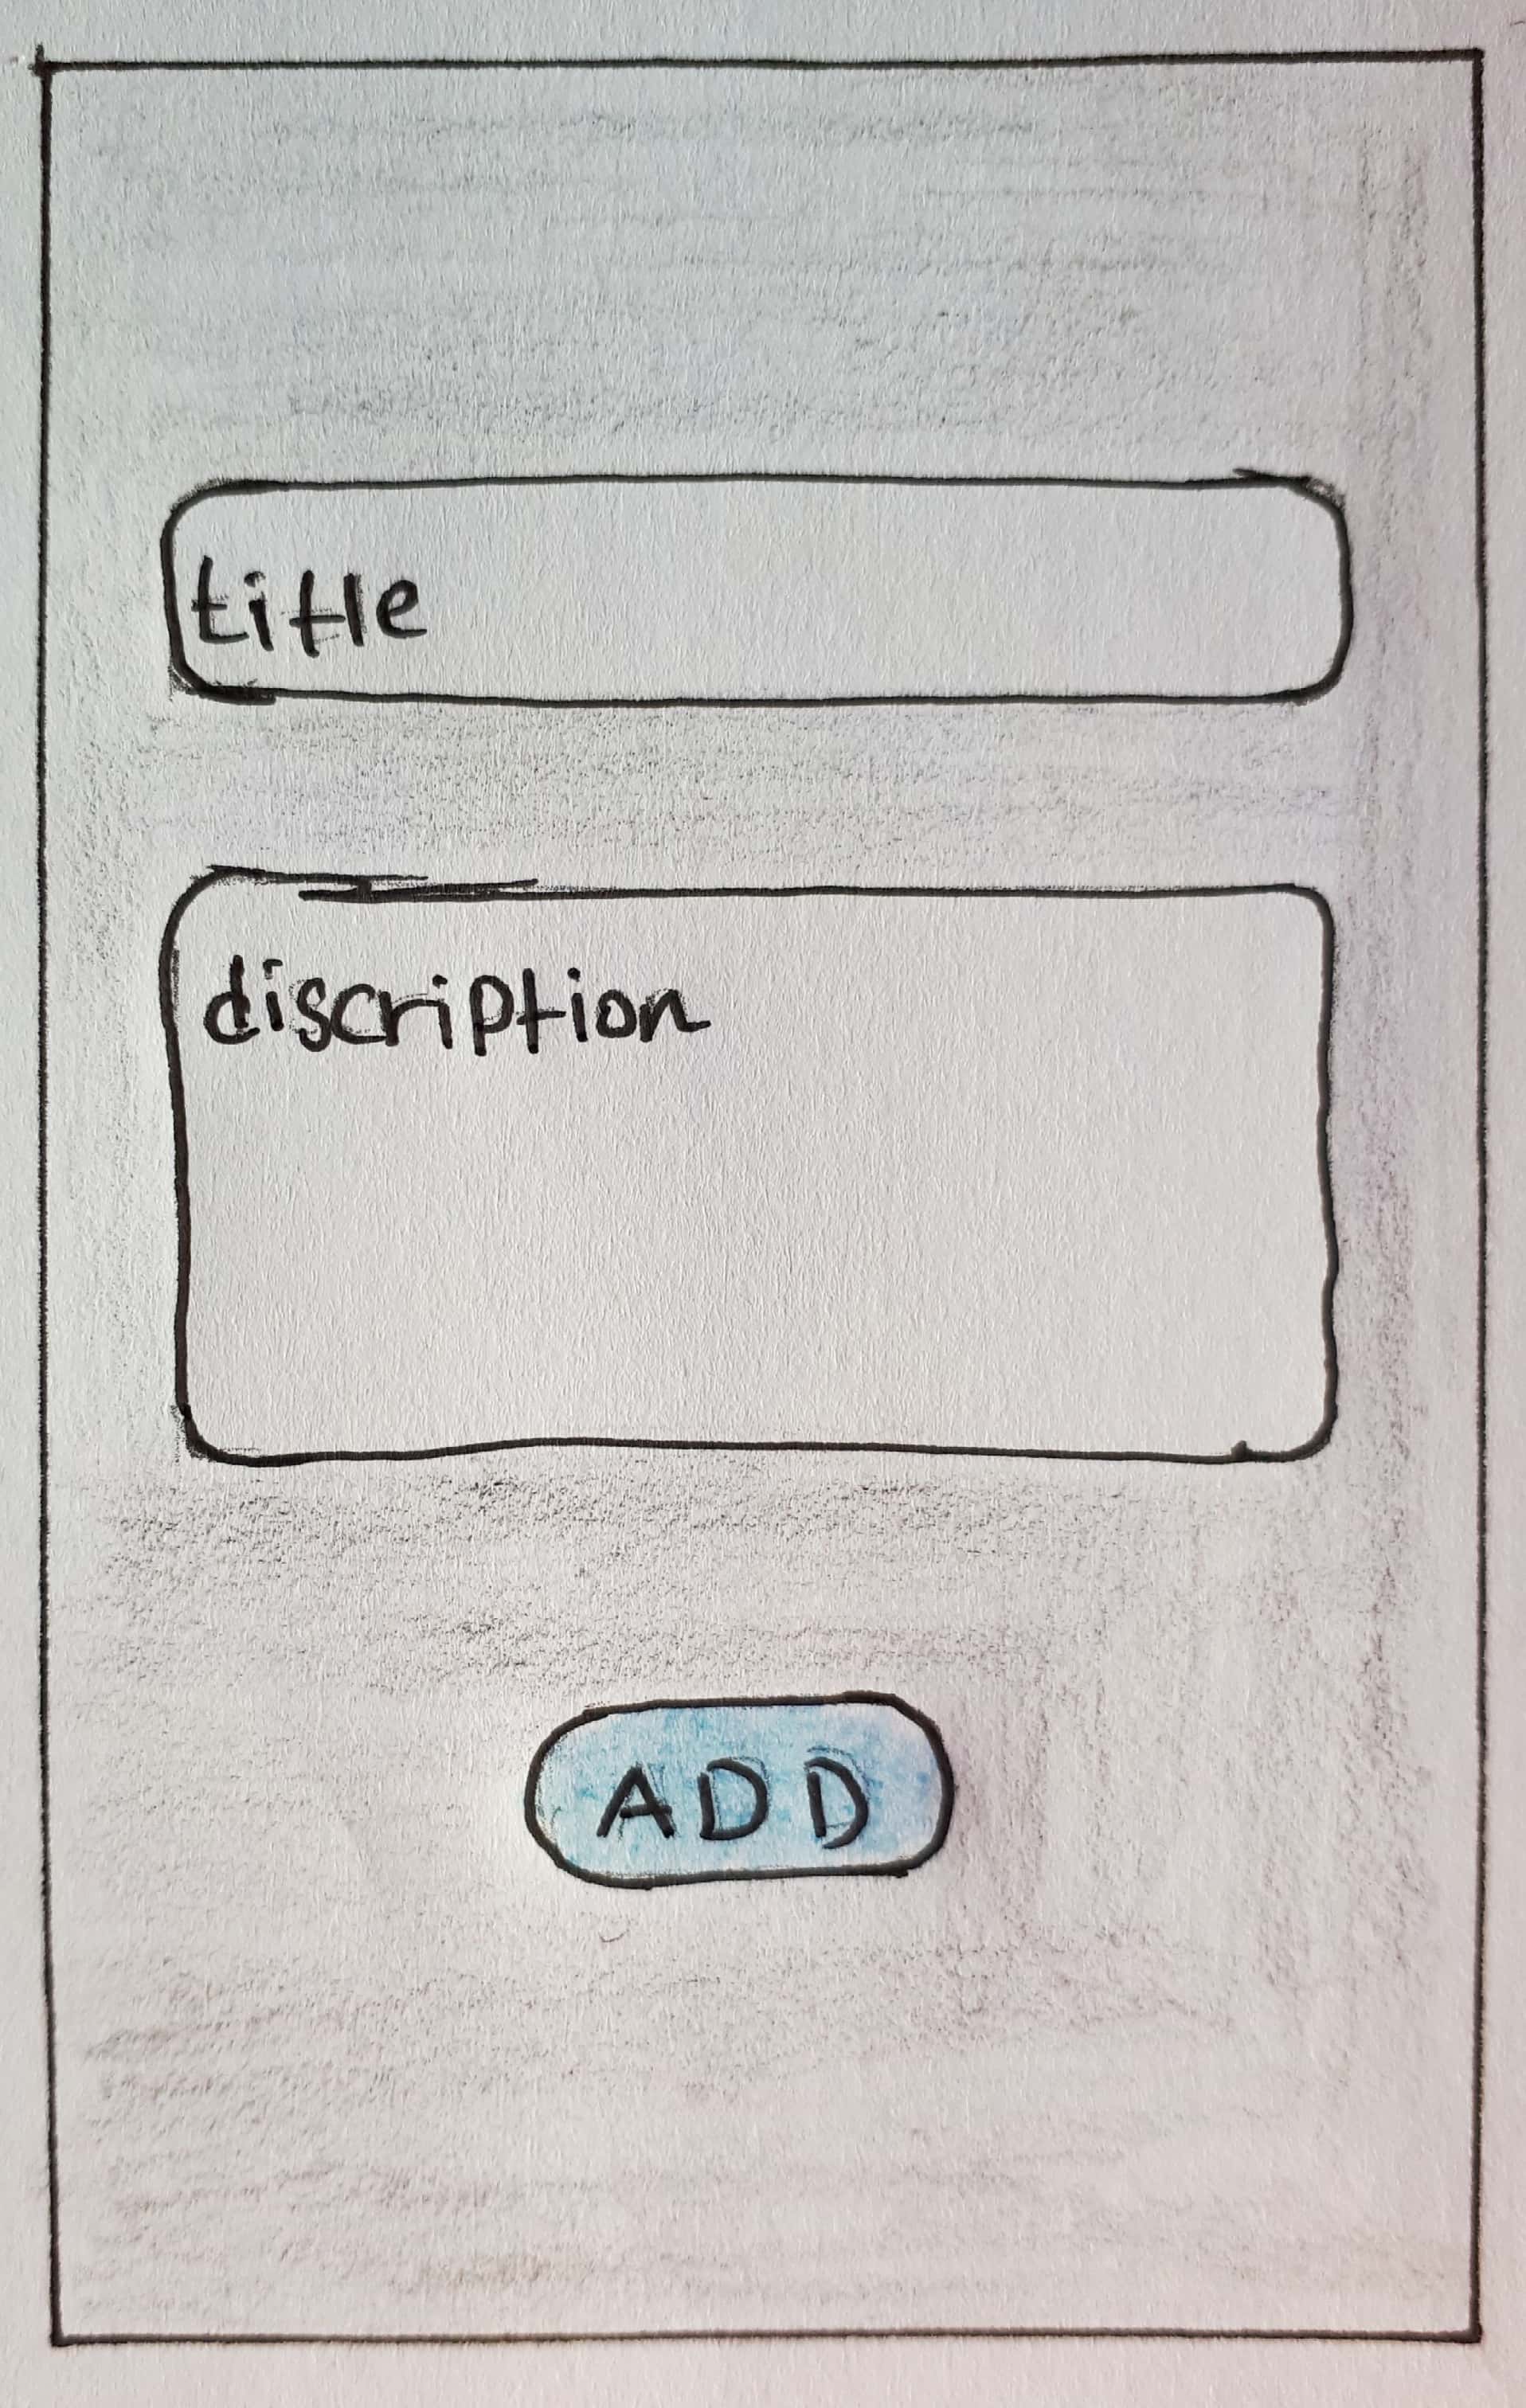 title
discription
ADD